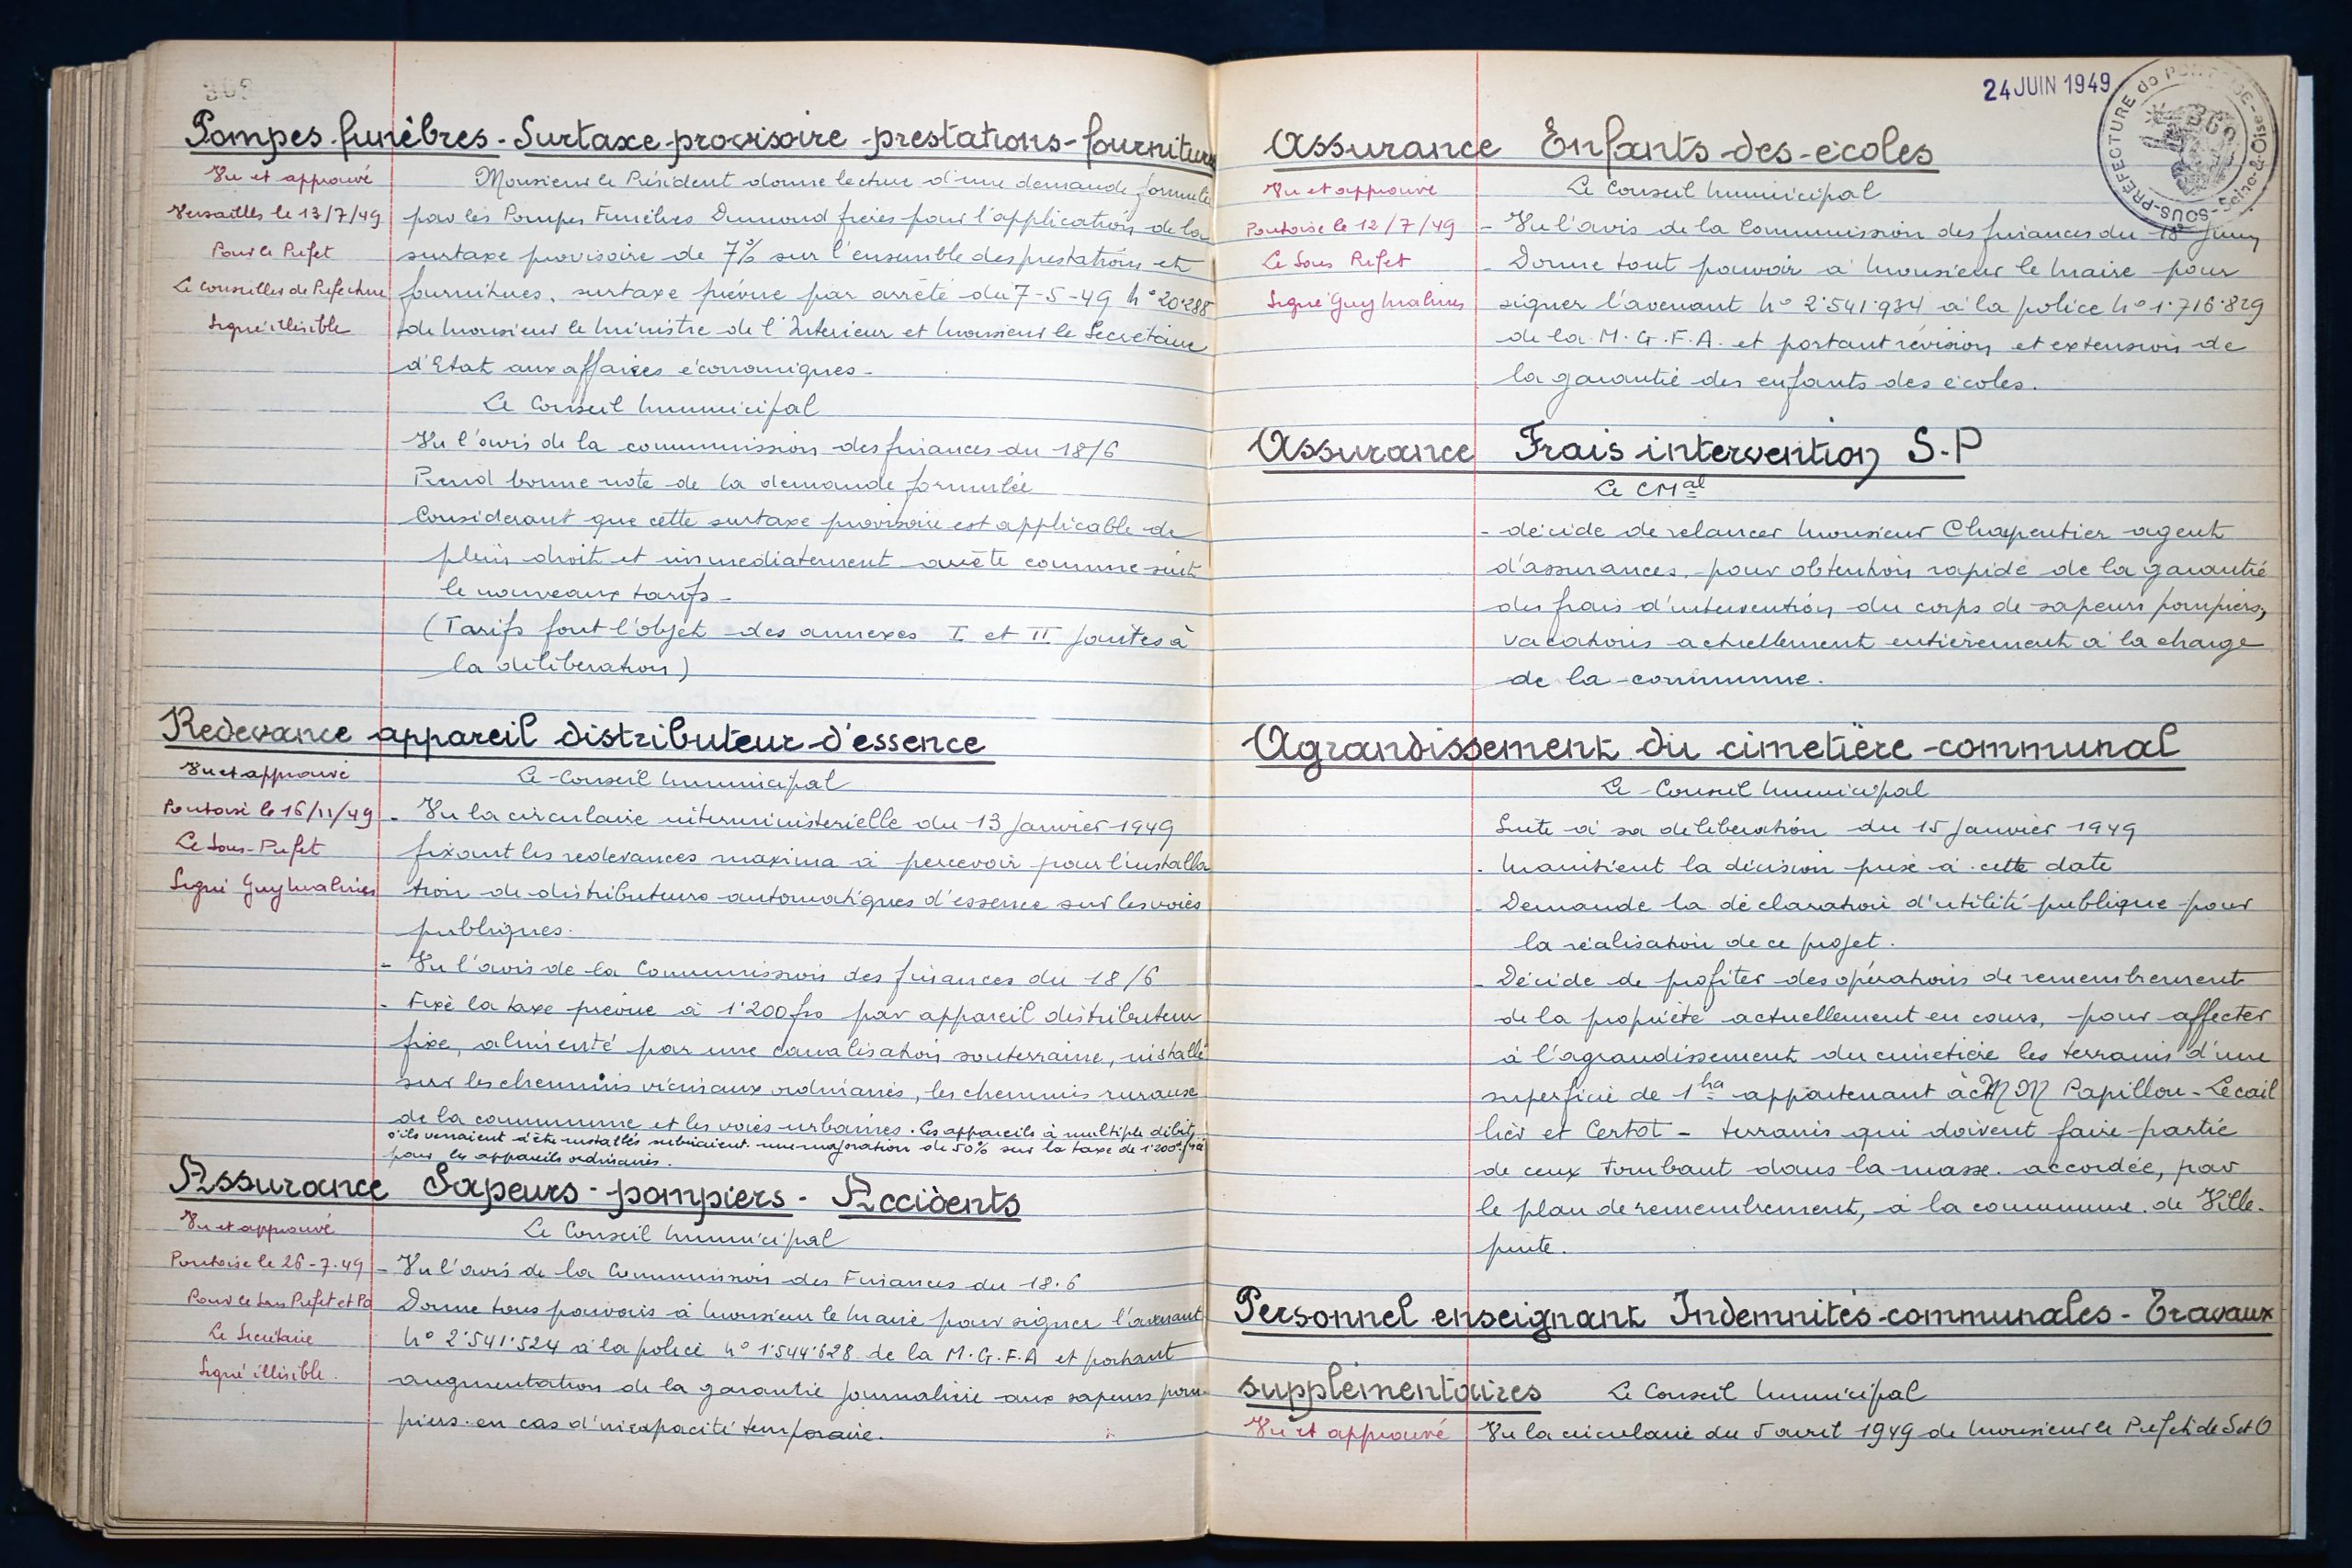 Pompes funèbres - Surtaxe provisoire - prestations - fourniture
Vu et approuvé
Versailles le 13/7/49
Pour le Préfet
Le Conseiller de Préfecture
Signé illisible
Monsieur le Président donne lecture d'une demande formulée
par les Pompes Funèbres Dumond frères pour l'application de la
surtaxe provisoire de 7% sur l'ensemble des prestations et
fournitures, surtaxe prévue par arrêté du 7-5-49 N° 20.288
de Monsieur le Ministre de l'Intérieur et Monsieur le Secrétaire
d'Etat aux affaires économiques -
Le Conseil Municipal
Vu l'avis de la commission des finances du 18/6
Prend bonne note de la demande formulée
Considerant que cette surtaxe provisoire est applicable de
plein droit et immediatement arrête comme suit
le nouveaux tarifs -
(Tarifs font l'objet des annexes I et II jointes à
la déliberation)
Redevance appareil distributeur d'essence
Vu et approuvé
Pontoise le 16/11/49
Le Sous-Préfet
Signé Guy Malines
Le Conseil Municipal
- Vu la circulaire interministerielle du 13 Janvier 1949
fixant les redevances maxima à percevoir pour l'installa
tion de distributeurs automatiques d'essence sur les voies
publiques.
- Vu l'avis de la Commission des finances du 18/6
- Fixe la taxe prévue à 1'200 frs par appareil distributeur
fixe, alimenté par une canalisation souterraine, installé
sur les chemins vicinaux ordinaires, les chemins ruraux
de la commune et les voies urbaines. Les appareils à multiple débit
s'ils venaient d'être installés subiraient une majoration de 50% sur la taxe de 1'200f fixée
pour les appareils ordinaires.
Assurance Sapeurs-pompiers - Accidents
Vu et approuvé
Pontoise le 26-7-49
Pour le Sous Préfet et Po
Le Secrétaire
Signé illisible.
Le Conseil Municipal
- Vu l'avis de la Commission des Finances du 18.6
Donne tous pouvoirs à Monsieur le Maire pour signer l'avenant
N° 2'541'524 à la police N° 1'544'628 de la M.G.F.A et portant
augmentation de la garantie journalière aux sapeurs pom-
piers en cas d'incapacité temporaire.
24 JUIN 1949
SOUS-PRÉFECTURE de PONTOISE - Seine-&-Oise
Assurance Enfants des écoles
Vu et approuvé
Pontoise le 12/7/49
Le Sous Préfet
Signé Guy Malines
Le Conseil Municipal
- Vu l'avis de la Commission des finances du 18 Juin
- Donne tout pouvoir à Monsieur le Maire pour
signer l'avenant N° 2'541'934 à la police N° 1'716'829
de la M.G.F.A. et portant révision et extension de
la garantie des enfants des écoles.
Assurance Frais intervention S-P
Le CMal
- décide de relancer Monsieur Charpentier agent
d'assurances, pour obtention rapide de la garantie
des frais d'intervention du corps de sapeurs pompiers,
vacations actuellement entièrement à la charge
de la commune.
Agrandissement du cimetière communal
Le Conseil Municipal
Suite à sa déliberation du 15 Janvier 1949
- Maintient la décision prise à cette date
- Demande la déclaration d'utilité publique pour
la réalisation de ce projet.
- Décide de profiter des opérations de remembrement
de la propriété actuellement en cours, pour affecter
à l'agrandissement du cimetière les terrains d'une
superficie de 1ha appartenant à MM Papillon - Lecail
lier et Certot - terrains qui doivent faire partie
de ceux tombant dans la masse accordée, par
le plan de remembrement, à la commune de Ville-
pinte.
Personnel enseignant Indemnités communales - Travaux
supplémentaires
Le Conseil Municipal
Vu et approuvé
Vu la circulaire du 5 avril 1949 de Monsieur le Préfet de S et O